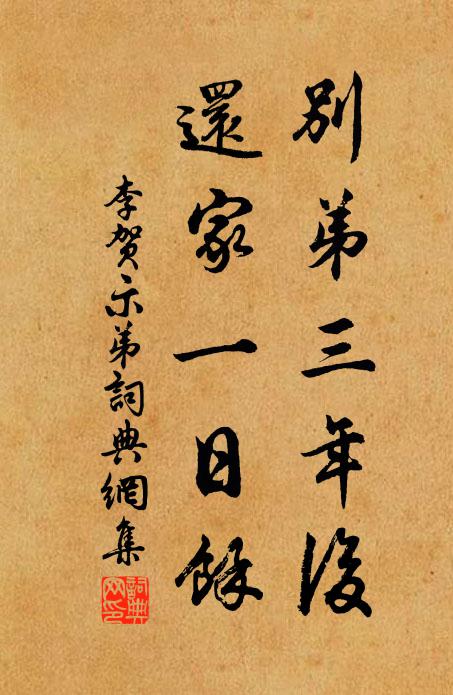 別弟三年後
還家一日餘
李賀示弟詞典網集
詞典
网印